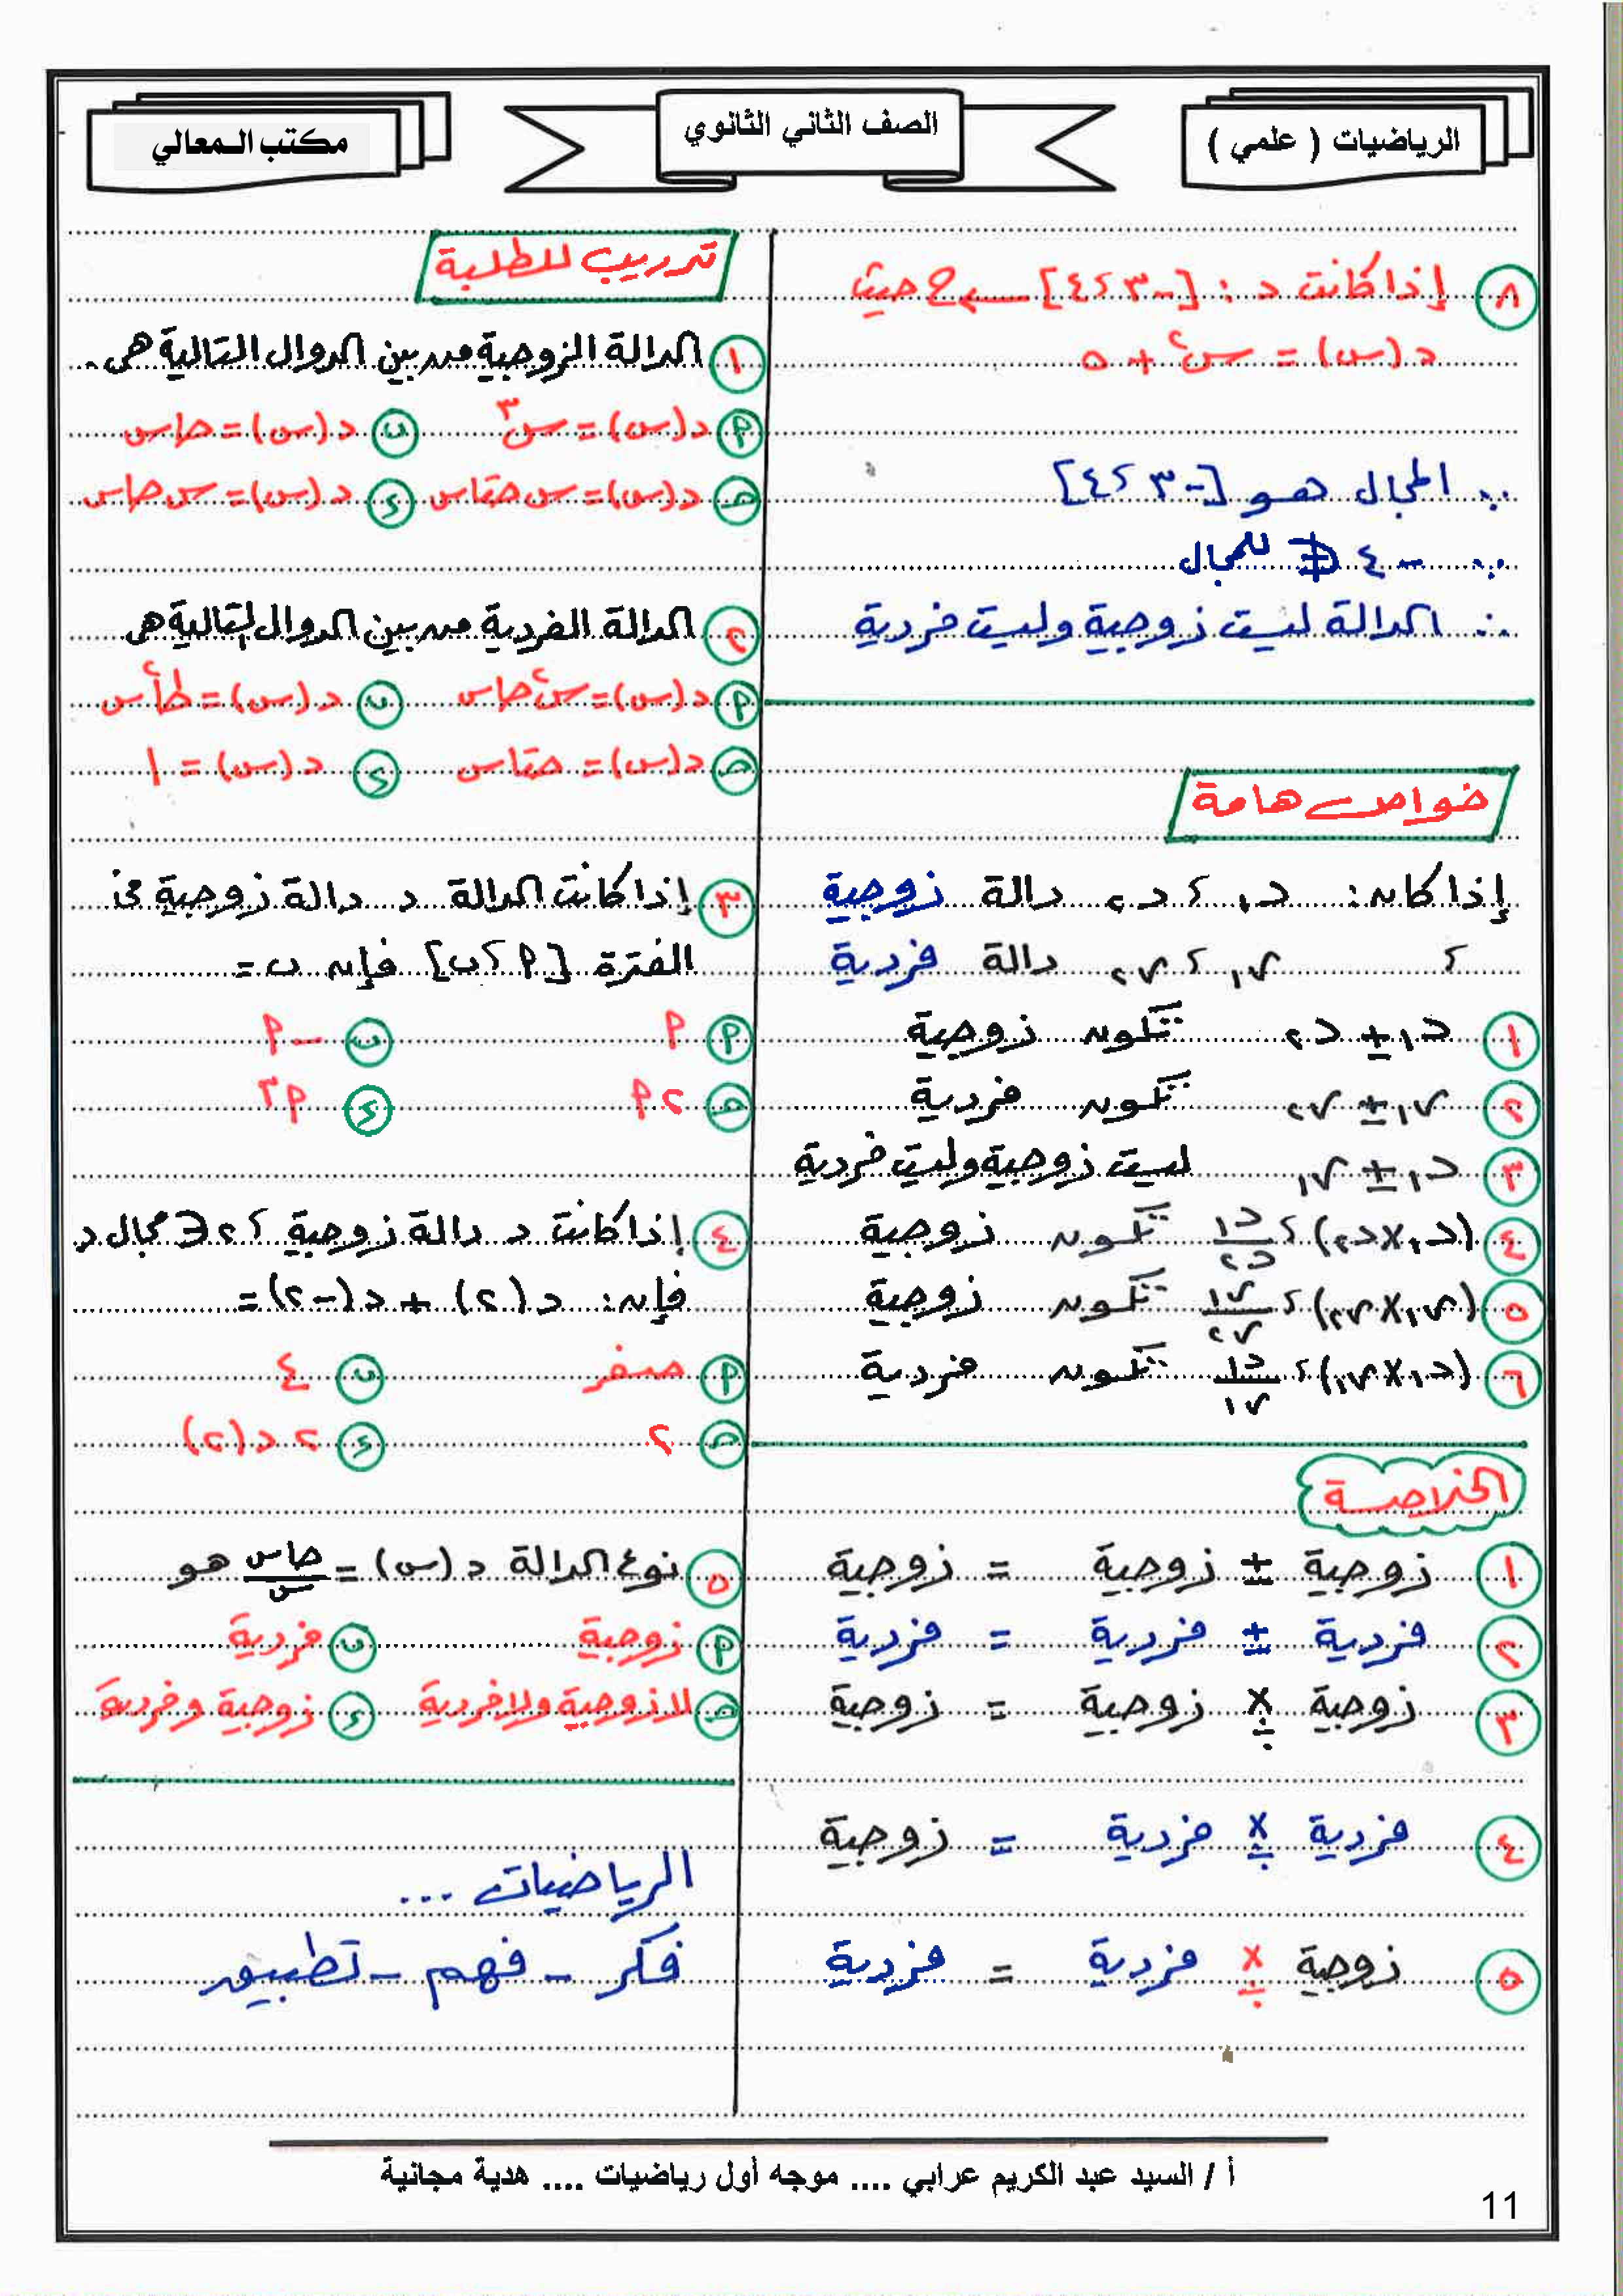 الرياضيات ( علمي )
الصف الثاني الثانوي
مكتب المعالي
٨ إذا كانت د : [-٣ ، ٤] ← ح حيث
د (س) = س٢ + ٥
∵ المجال هو [-٣ ، ٤]
∵ -٤ ∉ للمجال
∴ الدالة ليست زوجية وليست فردية
خواص هامة
إذا كان: د١ ، د٢ دالة زوجية
، ر١ ، ر٢ دالة فردية
١ د١ ± د٢ تكون زوجية
٢ ر١ ± ر٢ تكون فردية
٣ د١ ± ر١ ليست زوجية وليست فردية
٤ (د١ × د٢) ، د١/د٢ تكون زوجية
٥ (ر١ × ر٢) ، ر١/ر٢ تكون زوجية
٦ (د١ × ر١) ، د١/ر١ تكون فردية
الخلاصة
١ زوجية ± زوجية = زوجية
٢ فردية ± فردية = فردية
٣ زوجية × ÷ زوجية = زوجية
٤ فردية × ÷ فردية = زوجية
٥ زوجية × ÷ فردية = فردية
تدريب للطلبة
١ الدالة الزوجية من بين الدوال التالية هى..
أ د (س) = س٣ ب د (س) = حا س
حـ د (س) = س حتا س ء د (س) = س حا س
٢ الدالة الفردية من بين الدوال التالية هى
أ د (س) = س٢ حا س ب د (س) = طا٢ س
حـ د (س) = حتا س ء د (س) = ١
٣ إذا كانت الدالة د دالة زوجية فى
الفترة [أ ، ب] فإن ب =
أ أ ب -أ
حـ ٢أ ء أ٢
٤ إذا كانت د دالة زوجية ، ٢ ∈ مجال د
فإن: د (٢) + د (-٢) =
أ صفر ب ٤
حـ ٢ ء ٢ د (٢)
٥ نوع الدالة د (س) = حا س/س هو
أ زوجية ب فردية
حـ لا زوجية ولا فردية ء زوجية وفردية
الرياضيات ...
فكر - فهم - تطبيق
أ / السيد عبد الكريم عرابي .... موجه أول رياضيات .... هدية مجانية
11